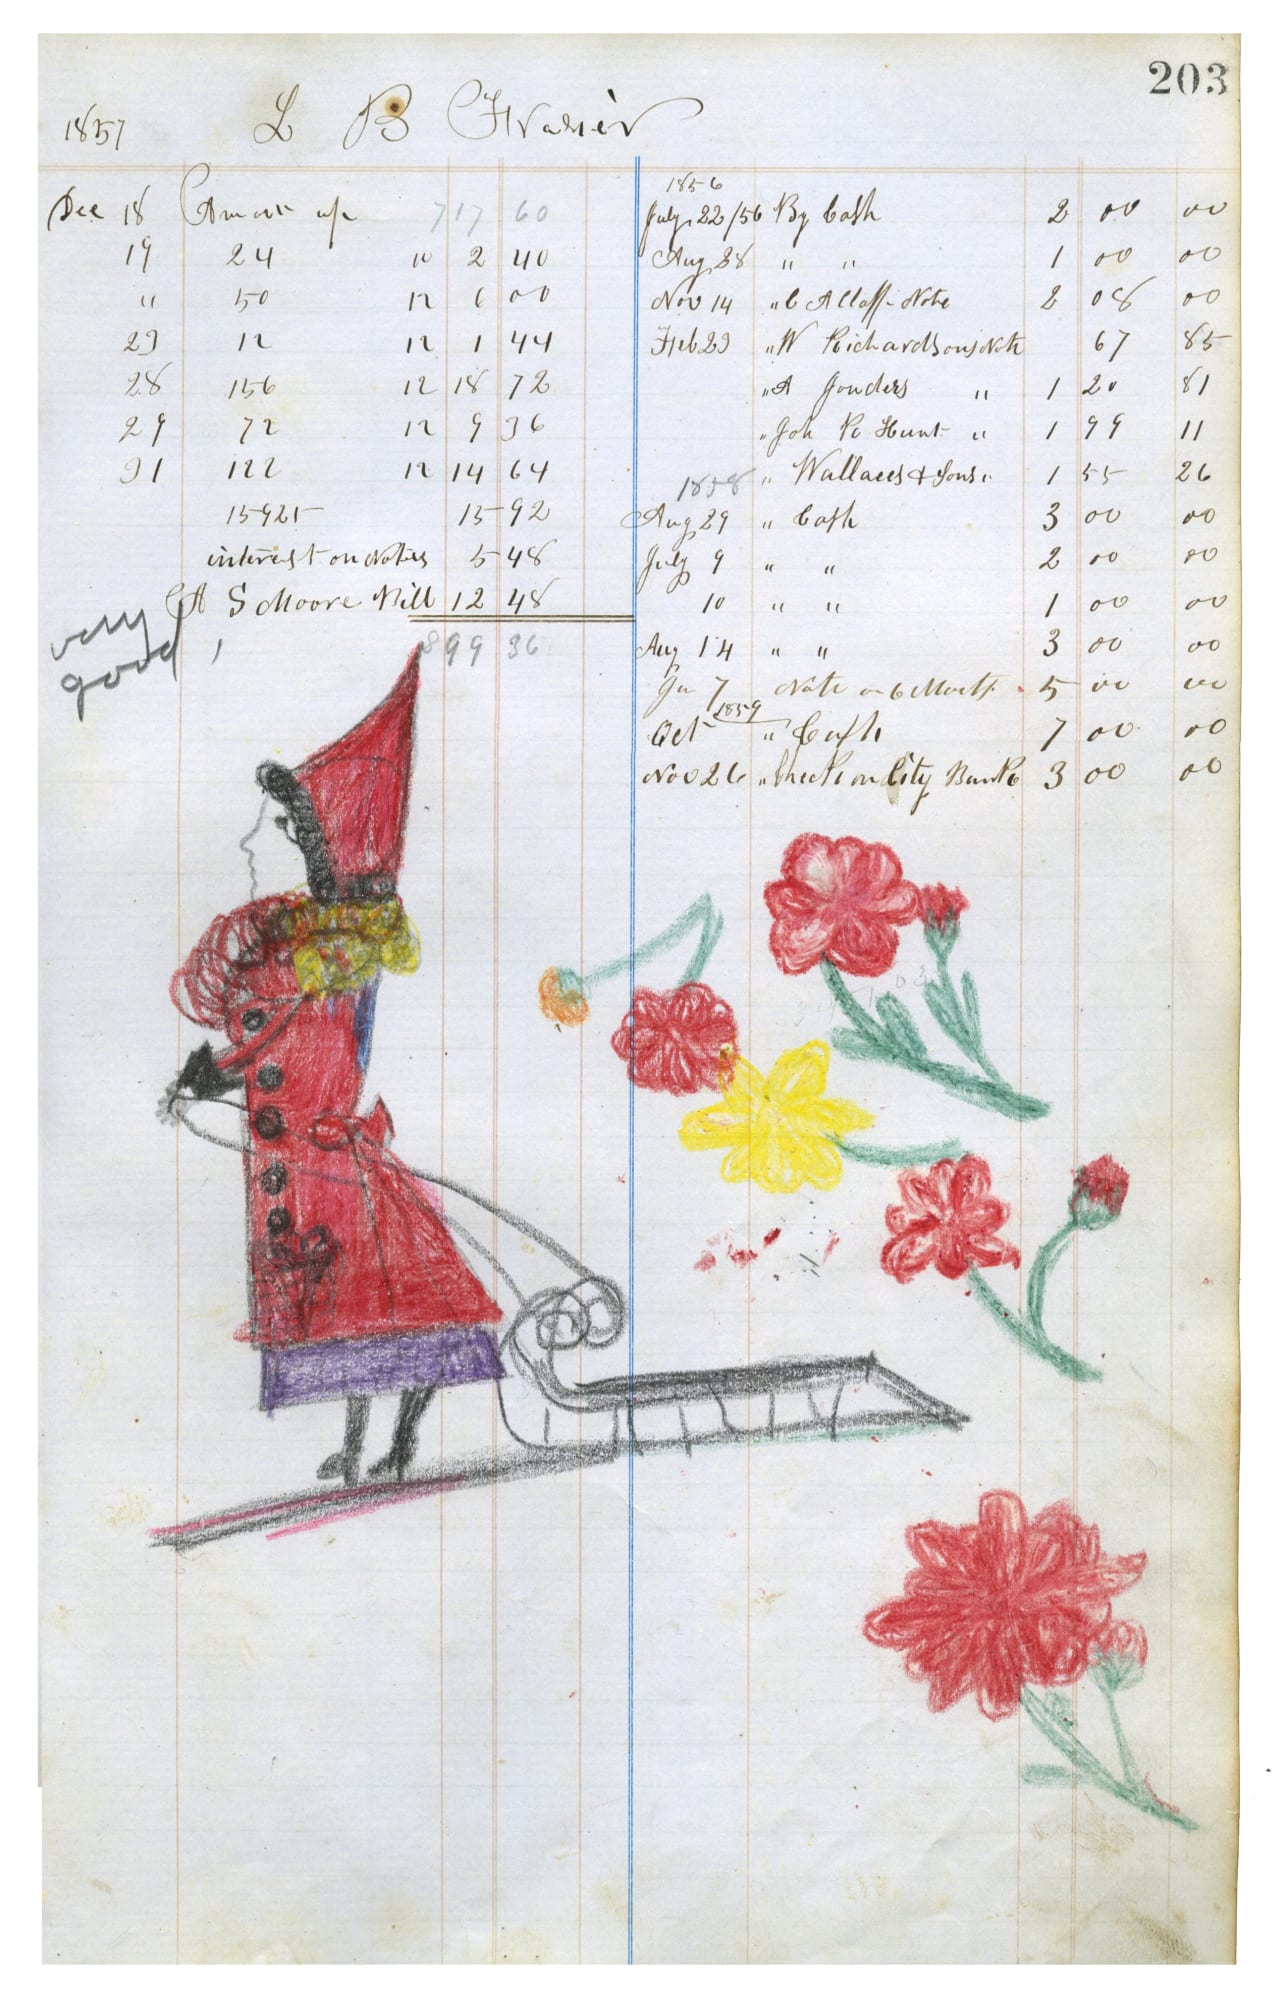 203
1857 L B Frazier
Dec 18 Amount up 717 60
19 24 10 2 40
" 50 12 6 00
23 12 12 1 44
28 156 12 18 72
29 78 12 9 36
31 122 12 14 64
15925 15 92
interest on Notes 5 48
A S Moore Bill 12 48
899 36
very
good
1856
July 22/56 By Cash 2 00 00
Aug 28 " " 1 00 00
Nov 14 " Note 2 08 00
Feb 23 " W Richardsons Note 67 85
" A " 1 20 81
" Joh Hunt " 1 99 11
1858 " Wallaces & Sons " 1 55 26
Aug 29 " Cash 3 00 00
July 9 " " 2 00 00
10 " " 1 00 00
Aug 14 " " 3 00 00
Jan 7 Note on 6 Month 5 00 00
1859
Oct " Cash 7 00 00
Nov 26 " Check on City Bank 3 00 00